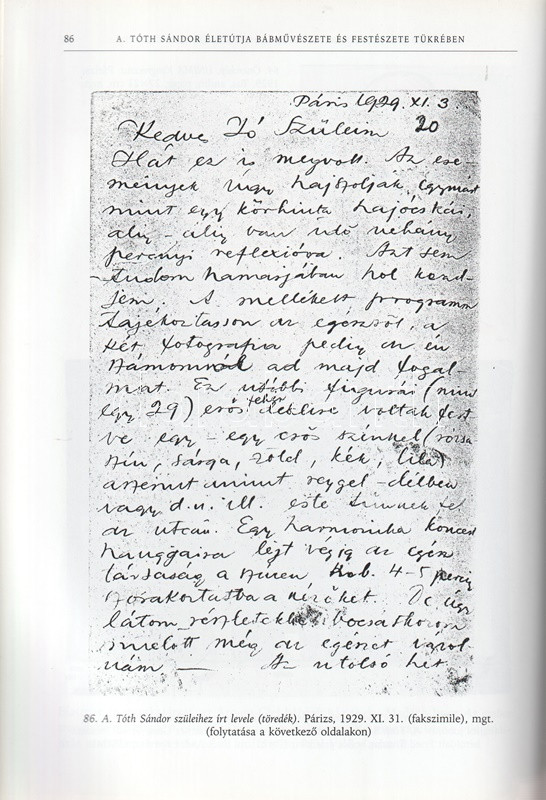 86 A. TÓTH SÁNDOR ÉLETÚTJA BÁBMŰVÉSZETE ÉS FESTÉSZETE TÜKRÉBEN
Páris 1929. XI. 3.
20
Kedves Jó Szüleim
Hát ez is megvolt. Az ese-
mények úgy hajszolják egymást
mint egy körhinta hajócskái,
alig-alig van idő néhány
percnyi reflexióra. Azt sem
tudom hamarjában hol kezd-
jem. A mellékelt programm
tájékoztasson az egészről, a
két fotografia pedig az én
számomról ad majd fogal-
mat. Ez utóbbi figurái (mind
egy 29) erős fehér voltak fest
ve egy-egy erős színnel (rózsa
szín, sárga, zöld, kék, lila)
aszerint amint reggel-délben
vagy d.u. ill. este tűnnek fel
az utcán. Egy harmonika koncert
hangjaira lejt végig az egész
társaság a 4-5 percig
szórakoztatva a nézőket. De úgy
látom részletekbe bocsátkozom
mielőtt még az egészet vázol
nám — Az utolsó hét
86. A. Tóth Sándor szüleihez írt levele (töredék). Párizs, 1929. XI. 31. (fakszimile), mgt.
(folytatása a következő oldalakon)